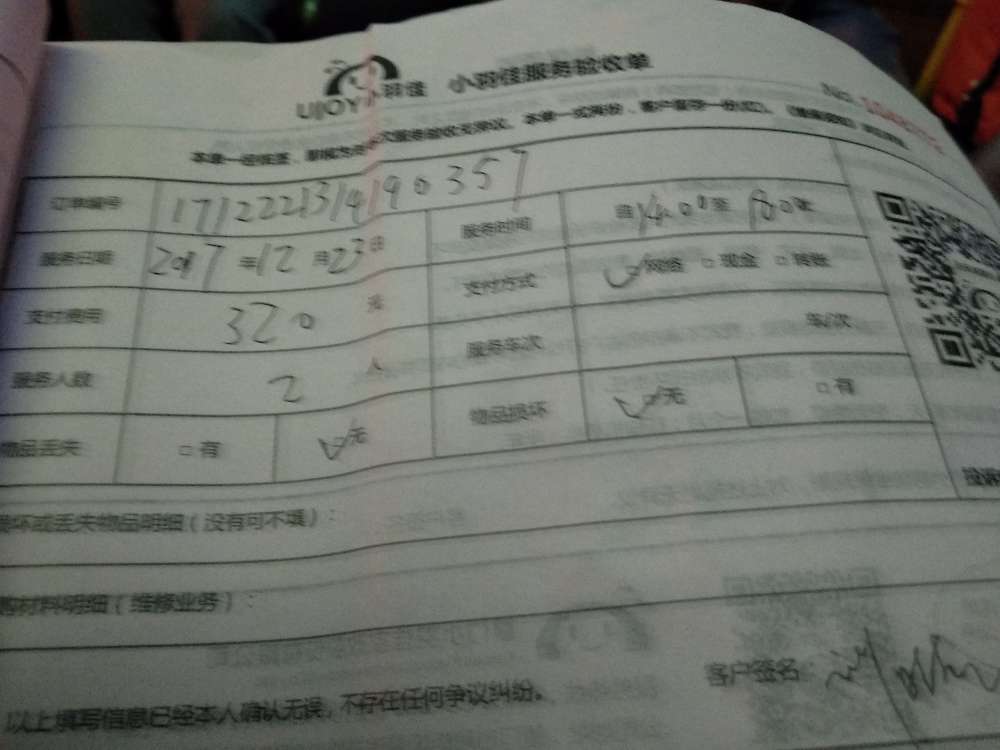 UJOY小羽佳 小羽佳服务验收单
No.
本单一经核签，即视为本次服务验收无异议。本单一式两份，客户留存一份
订单编号 171222131919 0357
服务日期 2017年12月23日 服务时间 自14:00至18:0
支付费用 320 元 支付方式 网络 □现金 □转账
服务人数 2 人 服务车次 车/次
物品丢失 □有 无 物品损坏 无 □有
损坏或丢失物品明细（没有可不填）：
材料明细（维修业务）：
以上填写信息已经本人确认无误，不存在任何争议纠纷。 客户签名：